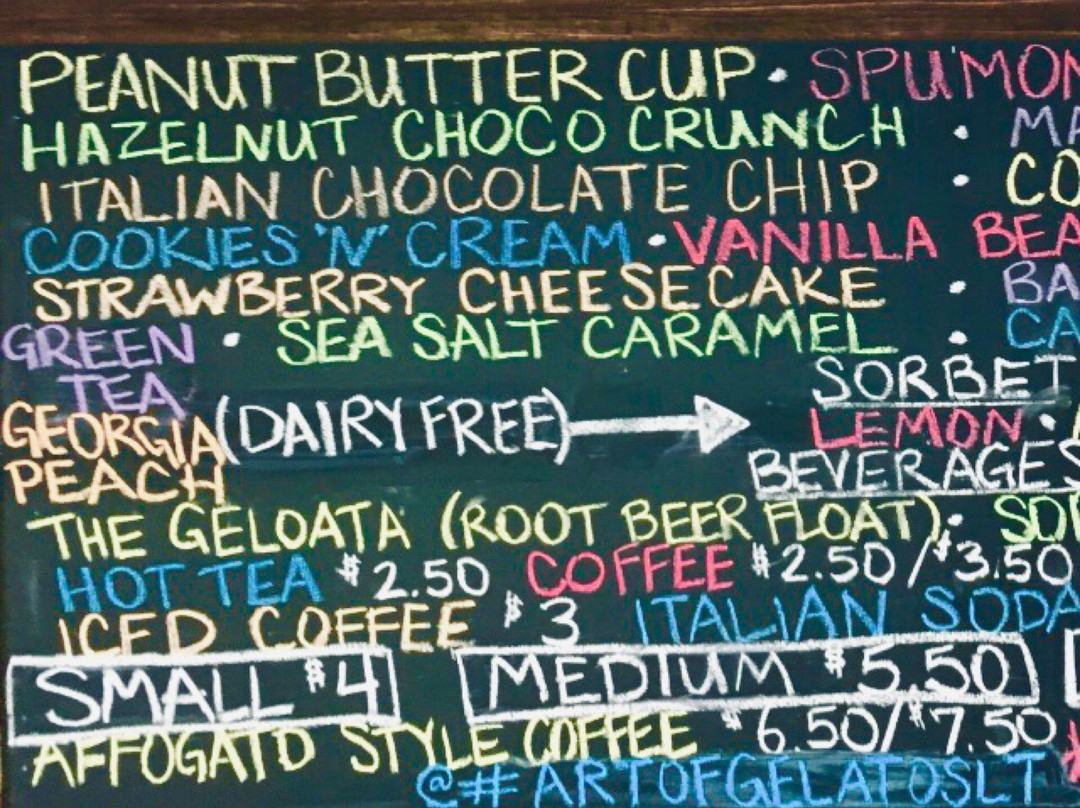 PEANUT BUTTER CUP · SPUMON
HAZELNUT CHOCO CRUNCH · MA
ITALIAN CHOCOLATE CHIP · CO
COOKIES 'N' CREAM · VANILLA BEA
STRAWBERRY CHEESECAKE · BA
GREEN TEA · SEA SALT CARAMEL · CA
SORBET
GEORGIA PEACH (DAIRY FREE) → LEMON ·
BEVERAGES
THE GELOATA (ROOT BEER FLOAT) · SOD
HOT TEA $2.50 COFFEE $2.50/$3.50
ICED COFFEE $3 ITALIAN SODA
SMALL $4 MEDIUM $5.50
AFFOGATO STYLE COFFEE $6.50/$7.50
@#ARTOFGELATOSLT